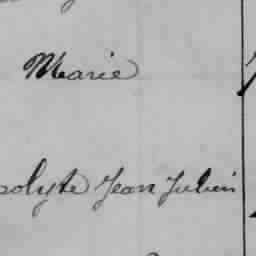 Marie
polyte Jean Julien